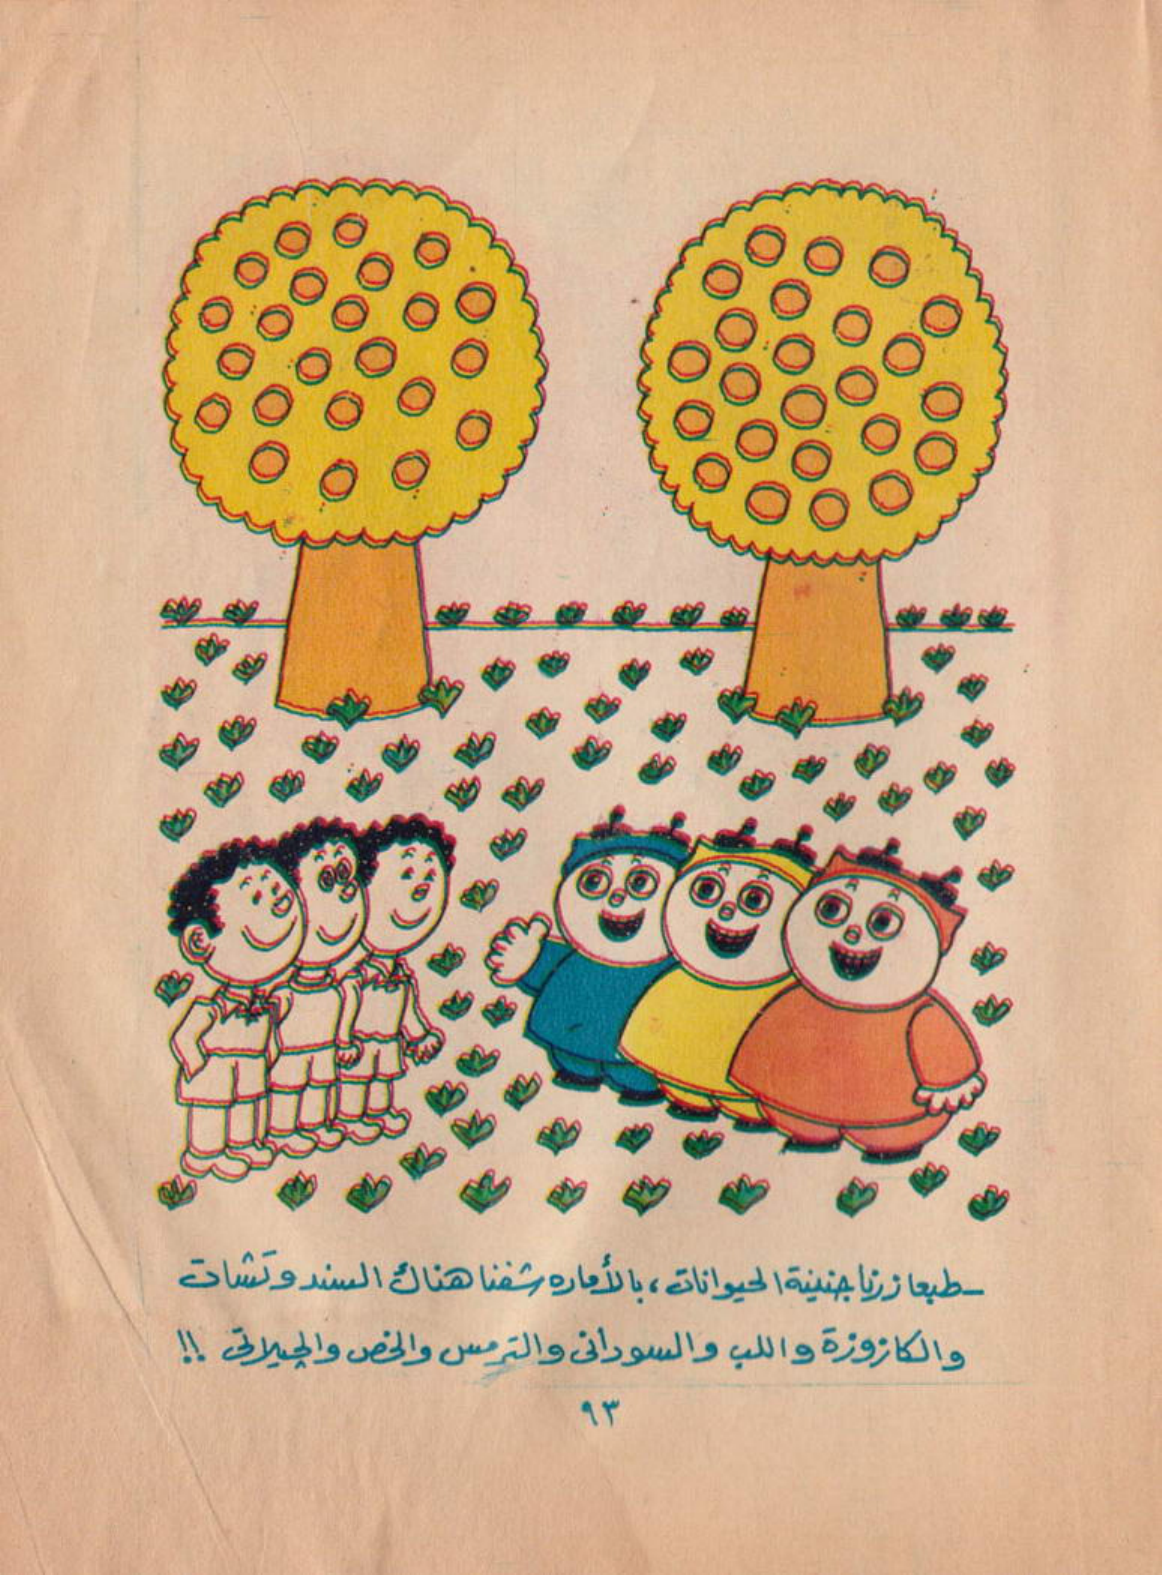 ـ طبعا زرنا جنينة الحيوانات ، بالأماره شفنا هناك السندوتشات
والكازوزة واللب والسودانى والترمس والخص والجيلاتى !!
٩٣